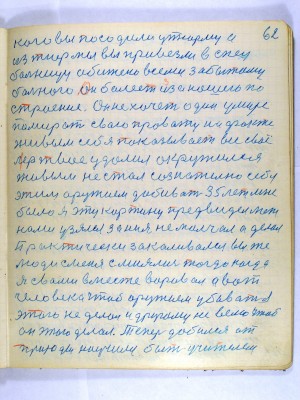 62
кого вы посодили утюрму а
из тюрмы вы привезли в спец
болницу обижено всеми забытому
болного. Он болеет изза ношего по
строение. Он не хочет один умира
свою на фронте
живым себя показывает он своё
мертвое
живым не стал сознателно себя
этим оружием добивать 35 лет мне
было я эту картину предвидел
нами узялся за ния не молчал а делал
Практически закаливался вы же
люди с меня смиялис тогда когда
я с вами вместе воровал а вот
человека чтоб оружием убивать я
этого не делал и другому не велю чтоб
он этого делал. Тепер добился от
природы научили быть учителем